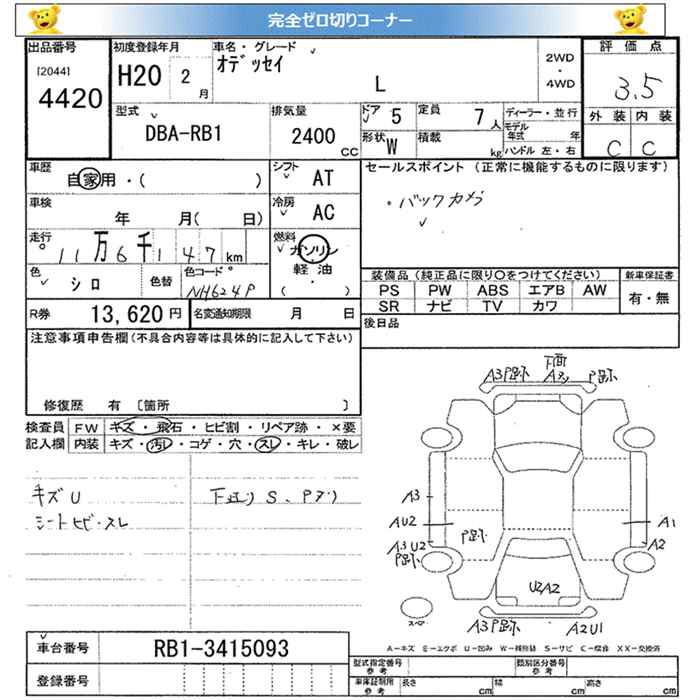 完全ゼロ切りコーナー
出品番号 初度登録年月 車名・グレード 2WD・4WD 評価点
[2044] 4420 H20 2月 オデッセイ L 3.5
型式 排気量 ドア 5 定員 7人 ディーラー・並行 外装 内装
DBA-RB1 2400cc 形状 W 積載 kg モデル年式 年 ハンドル 左・右 C C
車歴 自家用・( ) シフト AT セールスポイント (正常に機能するものに限ります)
車検 年 月( 日) 冷房 AC ・バックカメラ
走行 11万6千147km 燃料 ガソリン 軽油 ( ・ )
色 シロ 色替 色コード NH624P 装備品 (純正品に限り○をつけてください) 新車保証書
PS PW ABS エアB AW 有・無
SR ナビ TV カワ
R券 13,620円 名変通知期限 月 日 後日品
注意事項申告欄(不具合内容等は具体的に記入して下さい)
修復歴 有 〔箇所 〕
検査員 FW キズ・飛石・ヒビ割・リペア跡・×要
記入欄 内装 キズ・汚レ・コゲ・穴・スレ・キレ・破レ
キズU
シートヒビ・スレ
A3 P跡 下面 P跡
A3
AU2 P跡 A1
A3 U2 A2
P跡
U2A2
A3P跡 A2U1
スペア
A-キズ E-エクボ U-凹み W-補修跡 S-サビ C-腐食 XX-交換済
車台番号 RB1-3415093
登録番号
型式指定番号 参考 類別区分番号 参考
車庫証明用 参考 長さ cm 幅 cm 高さ cm